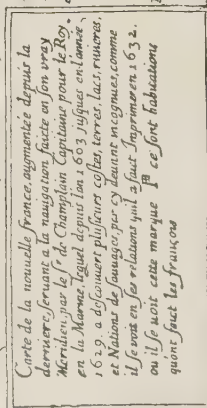 Carte de la nouuelle france, augmentée depuis la
derniere, seruant a la nauigation faicte en son vray
Meridien, par le Sr de Champlain Capitaine pour le Roy
en la Marine, lequel depuis lan 1603 jusques en l'année,
1629. a descouuert plusieurs costes, terres, lacs, riuieres,
et Nations de sauuages, par cy deuant incognues, comme
il se voit en ses relations quil a faict Imprimer en 1632.
ou il se uoit cette marque ce sont habitations
qu'ont faict les françois